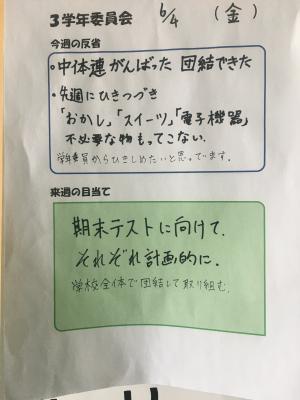 3学年委員会 6/4 (金)
今週の反省
・中体連がんばった 団結できた
・先週にひきつづき
「おかし」「スイーツ」「電子機器」
不必要な物もってこない。
学年委員からひきしめたいと思っています。
来週の目当て
期末テストに向けて、
それぞれ計画的に。
学校全体で団結して取り組む。